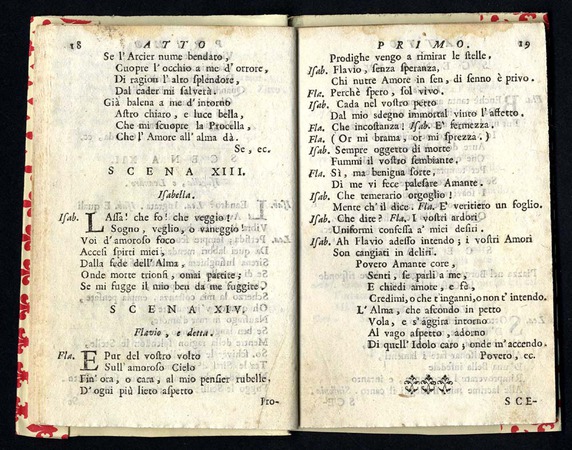 18 ATTO
Se l'Arcier nume bendato,
Cuopre l'occhio a me d'orrore,
Di ragion l'alto splendore,
Dal cader mi salverà.
Già balena a me d'intorno
Astro chiaro, e luce bella,
Che mi scuopre la Procella,
Che l'Amore all'alma dà.
Se, ec.
SCENA XIII.
Isabella.
Isab. LAssa! che fo! che veggio!
Sogno, veglio, o vaneggio!
Voi d'amoroso foco
Accesi spirti miei,
Dalla sede dell'Alma,
Onde morte trionfi, omai partite;
Se mi fugge il mio ben da me fuggite.
SCENA XIV.
Flavio, e detta.
Fla. EPur del vostro volto
Sull'amoroso Cielo
Fin'ora, o cara, al mio pensier rubelle,
D'ogni più lieto aspetto
Pro-
PRIMO. 19
Prodighe vengo a rimirar le stelle.
Isab. Flavio, senza speranza,
Chi nutre Amore in sen, di senno è privo.
Fla. Perchè spero, sol vivo.
Isab. Cada nel vostro petto
Dal mio sdegno immortal vinto l'affetto.
Fla. Che incostanza! Isab. E' fermezza.
Fla. ( Or mi brama, or mi sprezza. )
Isab. Sempre oggetto di morte
Fummi il vostro sembiante.
Fla. Sì, ma benigna sorte,
Di me vi fece palesare Amante.
Isab. Che temerario orgoglio!
Mente ch'il dice. Fla. E' veritiero un foglio.
Isab. Che dite? Fla. I vostri ardori
Uniformi confessa a' miei desiri.
Isab. Ah Flavio adesso intendo; i vostri Amori
Son cangiati in deliri.
Povero Amante core,
Senti, se parli a me,
E chiedi amore, e fà,
Credimi, o che t'inganni, o non t'intendo.
L'Alma, che ascondo in petto
Vola, e s'aggira intorno
Al vago aspetto, adorno
Di quell'Idolo caro; onde m'accendo.
Povero, ec.
SCE-